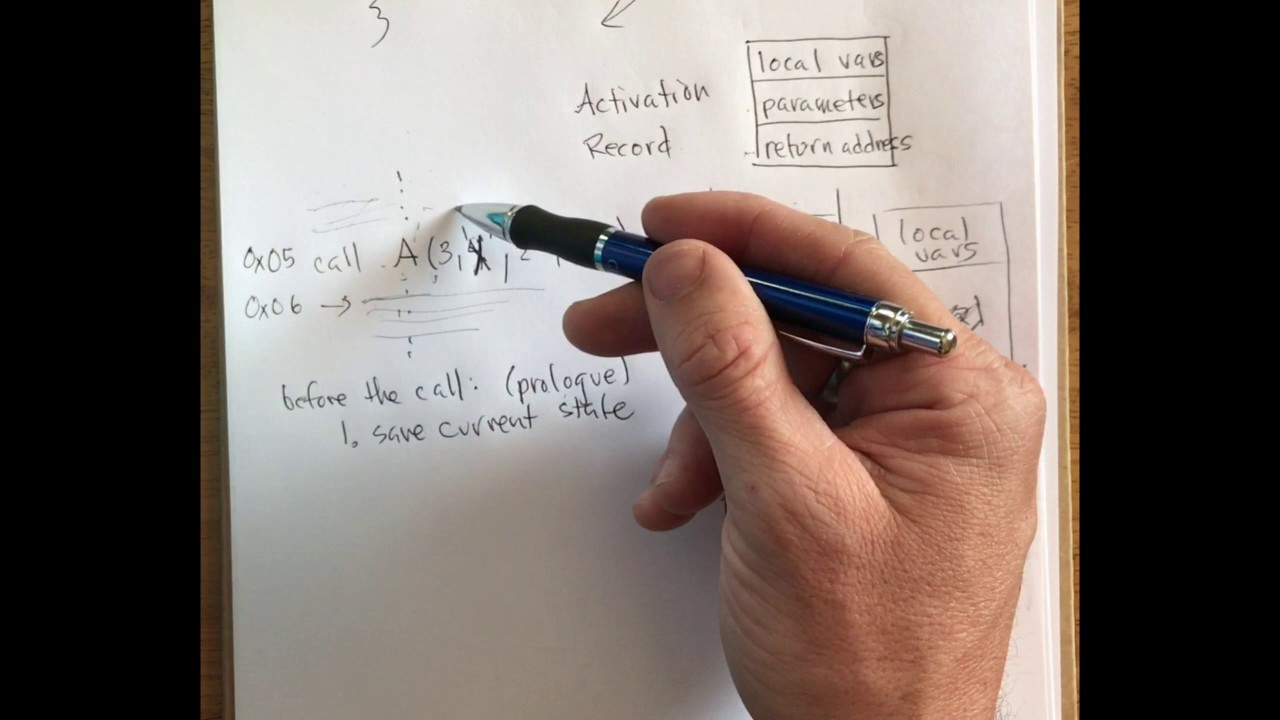 }
local vars
Activation
parameters
Record
return address
local
vars
0x05 call A (3,
0x06 →
before the call: (prologue)
1. save current state